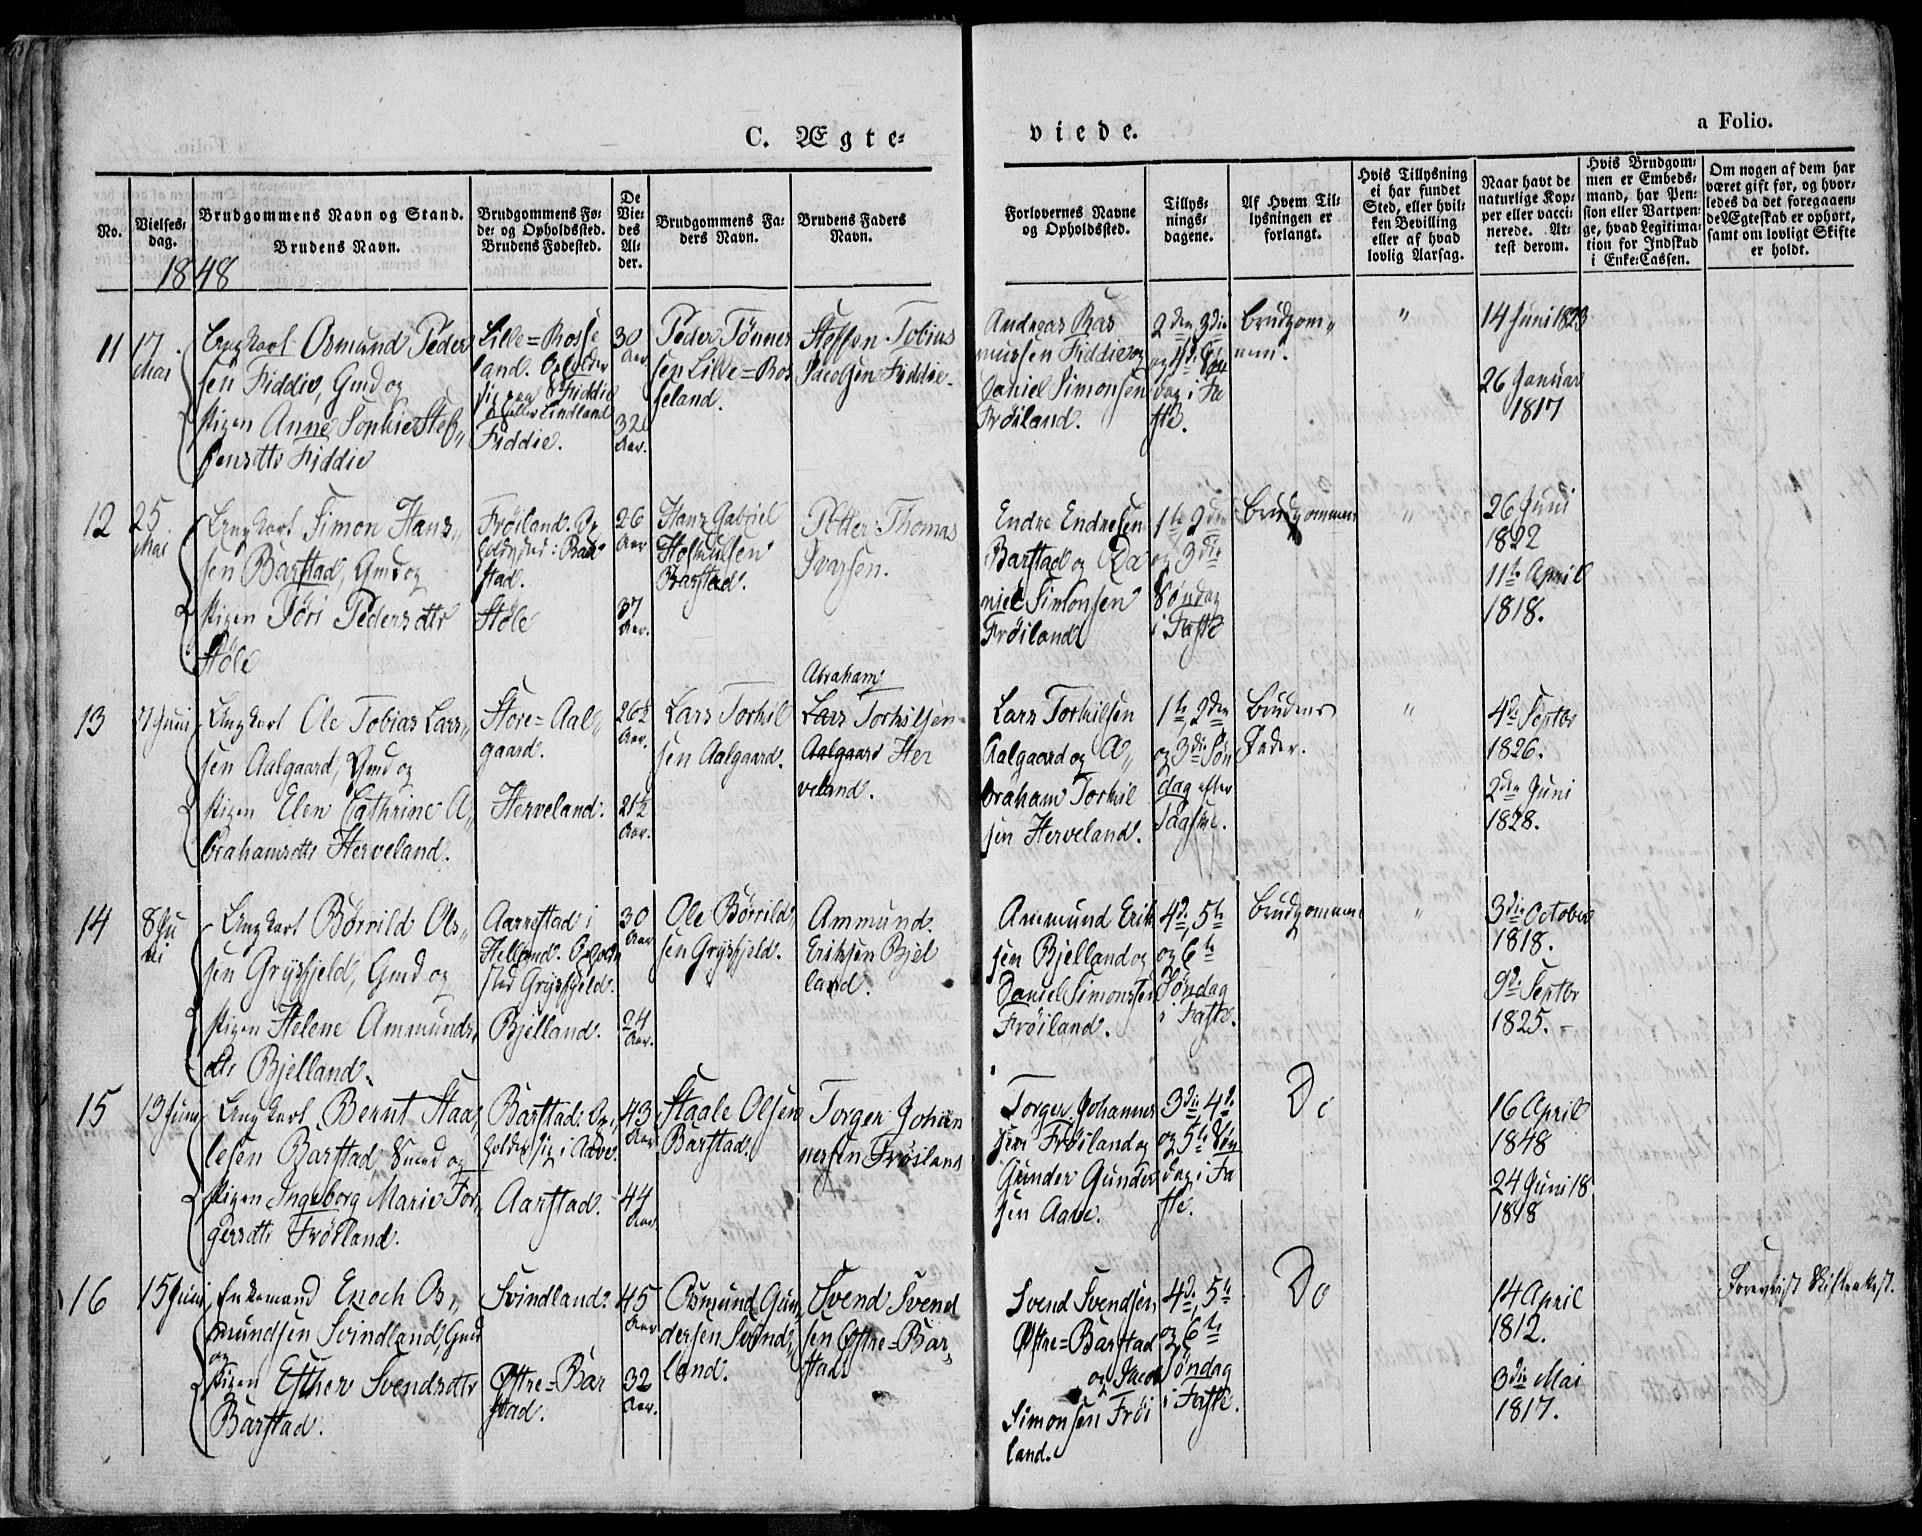 C. Ægte=
viede.
a Folio.
No.
Vielses=
dag.
Brudgommens Navn og Stand.
Brudens Navn.
Brudgommens Fø=
de= og Opholdssted.
Brudens Fødested.
De
Vie=
des
Al=
der.
Brudgommens Fa=
ders Navn.
Brudens Faders
Navn.
Forlovernes Navne
og Opholdssted.
Tillys=
nings=
dagene.
Af Hvem Til=
lysningen er
forlangt.
Hvis Tillysning
ei har fundet
Sted, eller hvil=
ken Bevilling
eller af hvad
lovlig Aarsag.
Naar havt de
naturlige Kop=
per eller vacci=
nerede. At=
test derom.
Hvis Brudgom=
men er Embeds=
mand, har Pen=
sion eller Vartpen=
ge, hvad Legitima=
tion for Indskud
i Enke=Cassen.
Om nogen af dem har
været gift før, og hvor=
ledes da det foregaaen=
de Ægteskab er ophørt,
samt om lovligt Skifte
er holdt.
1848
11
17
Mai
Ungkarl Osmund Peder
sen Fiddie, Gmd og
Pigen Anne Sophie Stef„
fensdtr Fiddie
Lille=Rosse
land. Opholder
sig paa Fiddie
Fiddie.
30
Aar
32
Aar.
Peder Tønnes
sen Lille=Ros
seland.
Steffen Tobias
Jacobsen Fiddie.
Andreas Ras
mussen Fiddie og
Daniel Simonsen
Frøiland.
2den, 3die
og 4de Søn
dag i Fa
ste.
Brudgom„
men.
"
14 Juni 1823
26 Januar
1817
12
25
Mai
Ungkarl Simon Hans„
sen Barstad, Gmd og
Pigen Jøri Pedersdtr
Støle
Frøiland. Op
holdssted: Bar
stad.
Støle
26
Aar
37
Aar.
Hans Gabriel
Barstad.
Petter Thomas
Ivarsen.
Endre Endresen
Barstad og Da
niel Simonsen
Frøiland
1te, 2den
og 3die
Søndag
i Faste
Brudgommen
"
26 Juni
1822
11te April
1818.
13
Juni
Ungkarl Ole Tobias Lars„
sen Aalgaard, Gmd og
Pigen Elen Cathrine A„
brahamsdtr Herveland.
Store=Aal„
gaard.
Herveland.
26½
Aar.
21½
Aar.
Lars Torkil
sen Aalgaard.
Abraham
Lars Torkilsen
Aalgaard Her
veland.
Lars Torkilsen
Aalgaard og A„
braham Torkil
sen Herveland.
1te, 2den
og 3die Søn
dag efter
Paaske.
Brudens
Fader.
"
4de Septbr
1826.
2den Juni
1828.
14
8 Ju
ni
Ungkarl Børrild Ols„
sen Grysfjeld, Gmd og
Pigen Helene Ammunds„
dtr Bjelland.
Aarrestad i
Helland. Ophold
sted Grysfjeld.
Bjelland.
30
Aar
24
Aar.
Ole Børrild„
sen Grysfjeld.
Ammund
Eriksen Bjel
land.
Ammund Erik
sen Bjelland og
Daniel Simonsen
Frøiland.
4de, 5te
og 6te
Søndag
i Faste.
Brudgommen
"
3die October
1818.
9de Septbr
1825.
15
13 Juni
Ungkarl Bernt Staa„
lesen Barstad Smed og
Pigen Ingeborg Marie Tor„
gersdtr Frøiland.
Barstad. Op„
holder sig i Aave.
Aarstad.
43
Aar
44
Aar
Staale Olsen
Barstad.
Torger Johan
nessen Frøiland
Torger Johannes
sen Frøiland og
Gunder Gunder
sen Aave.
3die, 4de
og 5te Søn
dag i Fa
ste.
Do
16 April
1848
24 Juni 18
1848
16
15 Juni
Enkemand Enoch Os„
mundsen Svindland, Gmd
og
Pigen Esther Svendsdtr
Barstad.
Svindland.
Østre=Bar
stad.
45
Aar
32
Aar.
Osmund Gun„
dersen Svind„
land.
Svend Svend
sen Østre=Bar„
stad
Svend Svendsen
Østre=Barstad
og Jacob
Simonsen Frøi
land.
4de, 5te
og 6te
Søndag
i Faste.
Do
14 April
1812.
3die Mai
1817.
Foreviist Skifteattest.